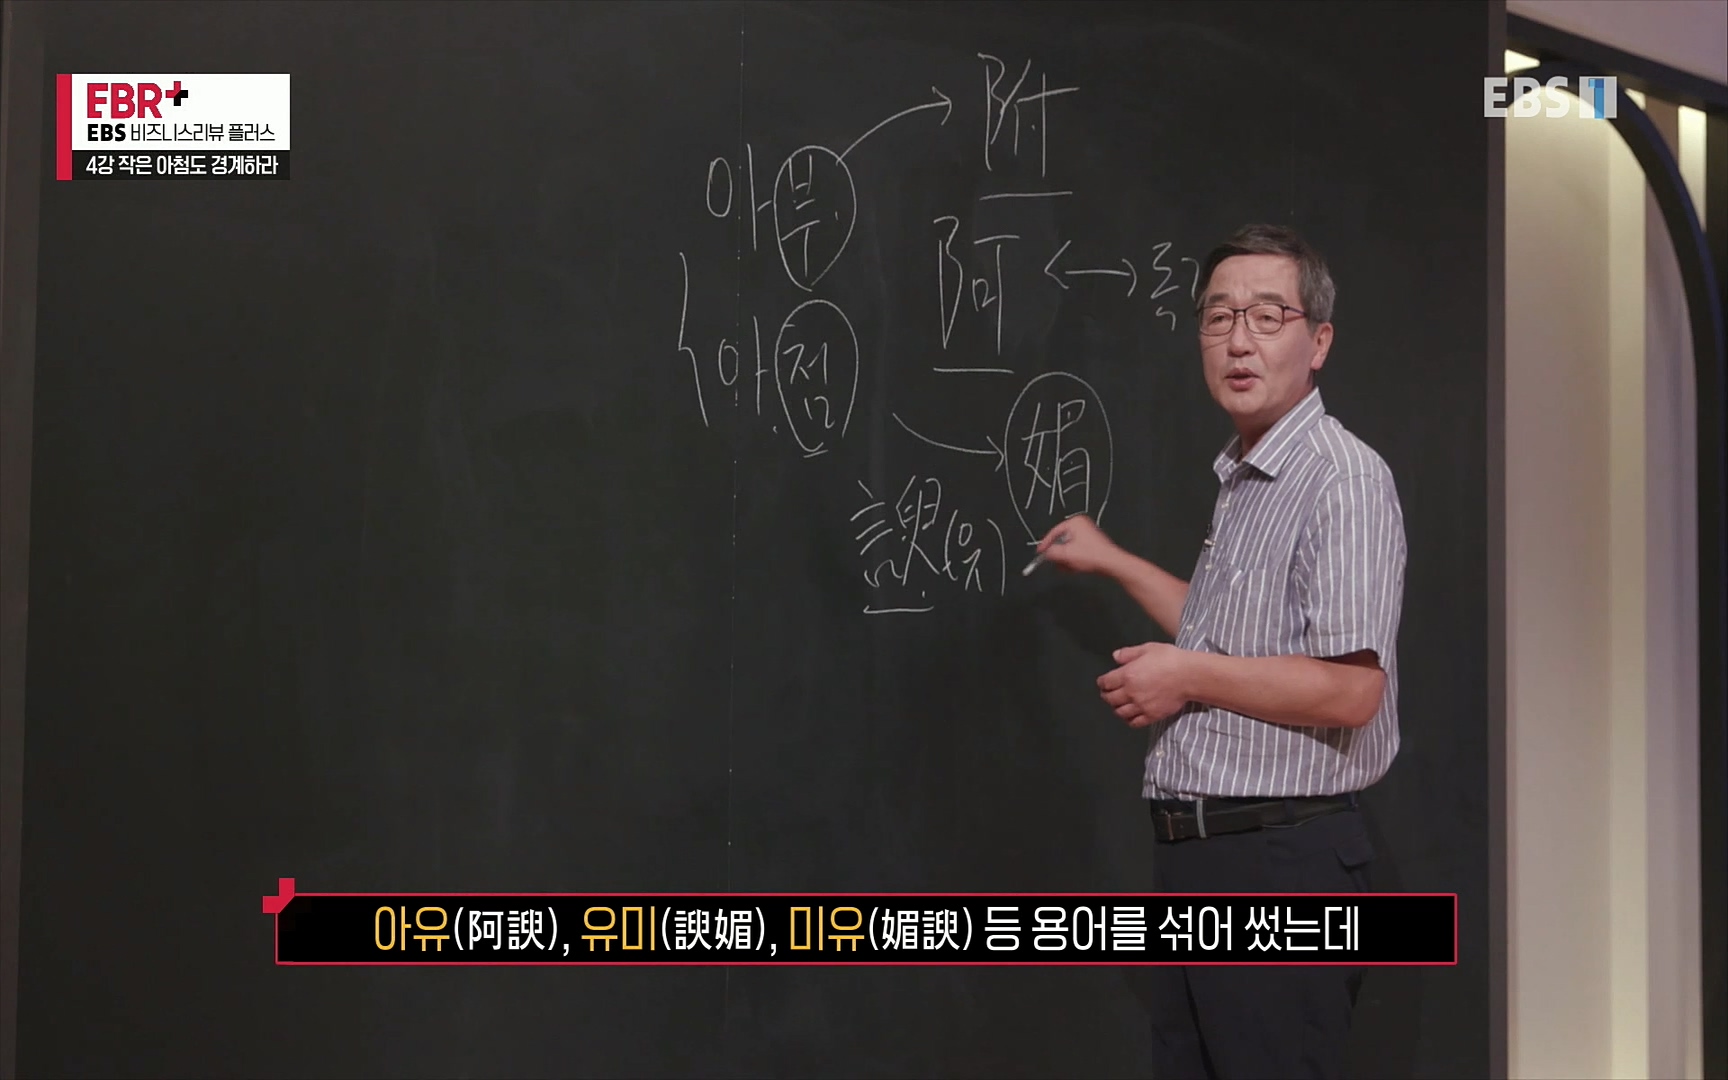 EBR+
EBS 비즈니스리뷰 플러스
4강 작은 아첨도 경계하라
EBS 1
附
아부
阿 ↔
아첨
媚
諛(유)
아유(阿諛), 유미(諛媚), 미유(媚諛) 등 용어를 섞어 썼는데